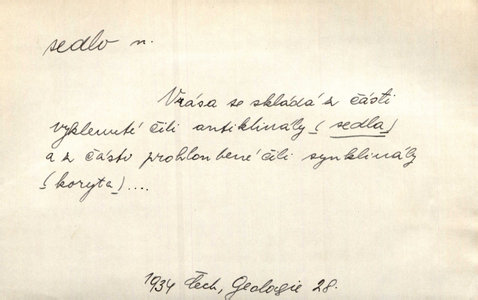 sedlo n.
Vrása se skládá z části
vyklenuté čili antiklinály (sedla)
a z části prohloubené čili synklinály
(koryta)....
1934 Čech, Geologie 28.